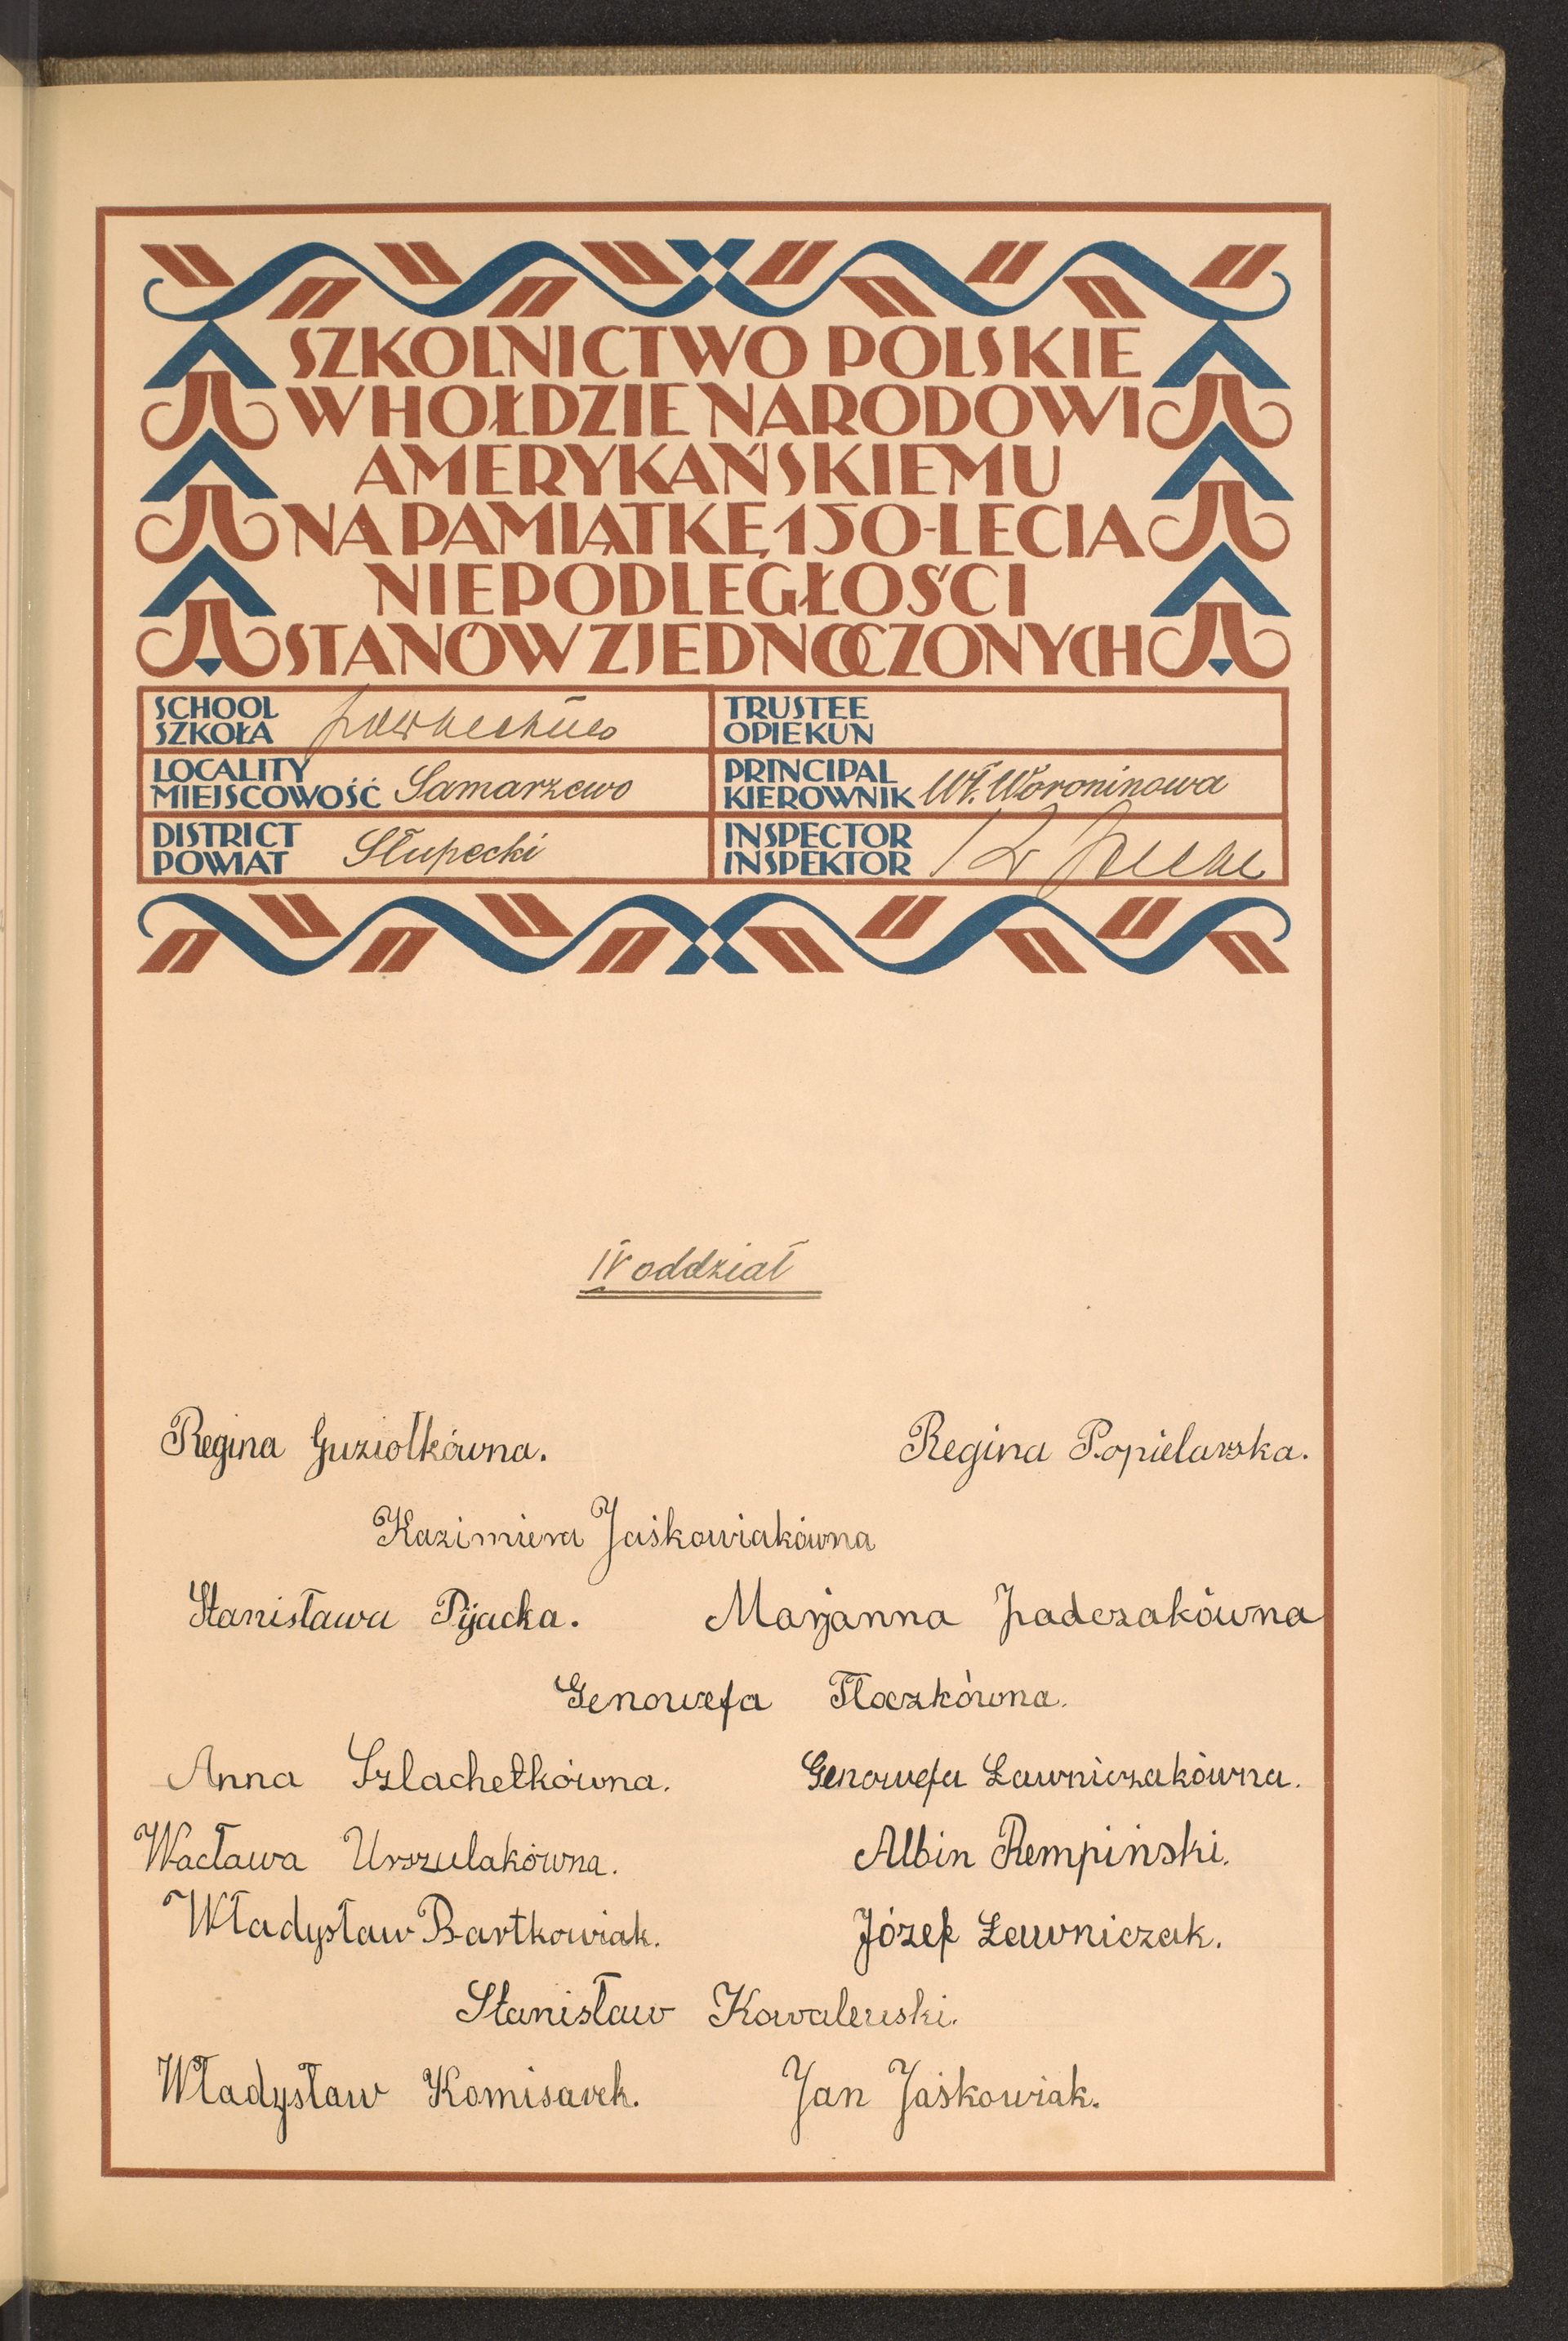 SZKOLNICTWO POLSKIE
W HOŁDZIE NARODOWI
AMERYKAŃSKIEMU
NA PAMIĄTKĘ 150-LECIA
NIEPODLEGŁOŚCI
STANÓW ZJEDNOCZONYCH
SCHOOL
SZKOŁA
TRUSTEE
OPIEKUN
LOCALITY
MIEJSCOWOŚĆ Samarzewo
PRINCIPAL
KIEROWNIK Wł. Woroninowa
DISTRICT
POWIAT Słupecki
INSPECTOR
INSPEKTOR
IV oddział
Regina Guziołkówna. Regina Popielarska.
Kazimiera Jaśkowiakówna
Stanisława Pijacka. Marjanna Padczakówna
Genowefa Tłoczkówna.
Anna Szlachetkówna. Genowefa Ławniczakówna.
Wacława Urszulakówna. Albin Rempiński.
Władysław Bartkowiak. Józef Ławniczak.
Stanisław Kowalewski.
Władysław Komisarek. Jan Jaśkowiak.